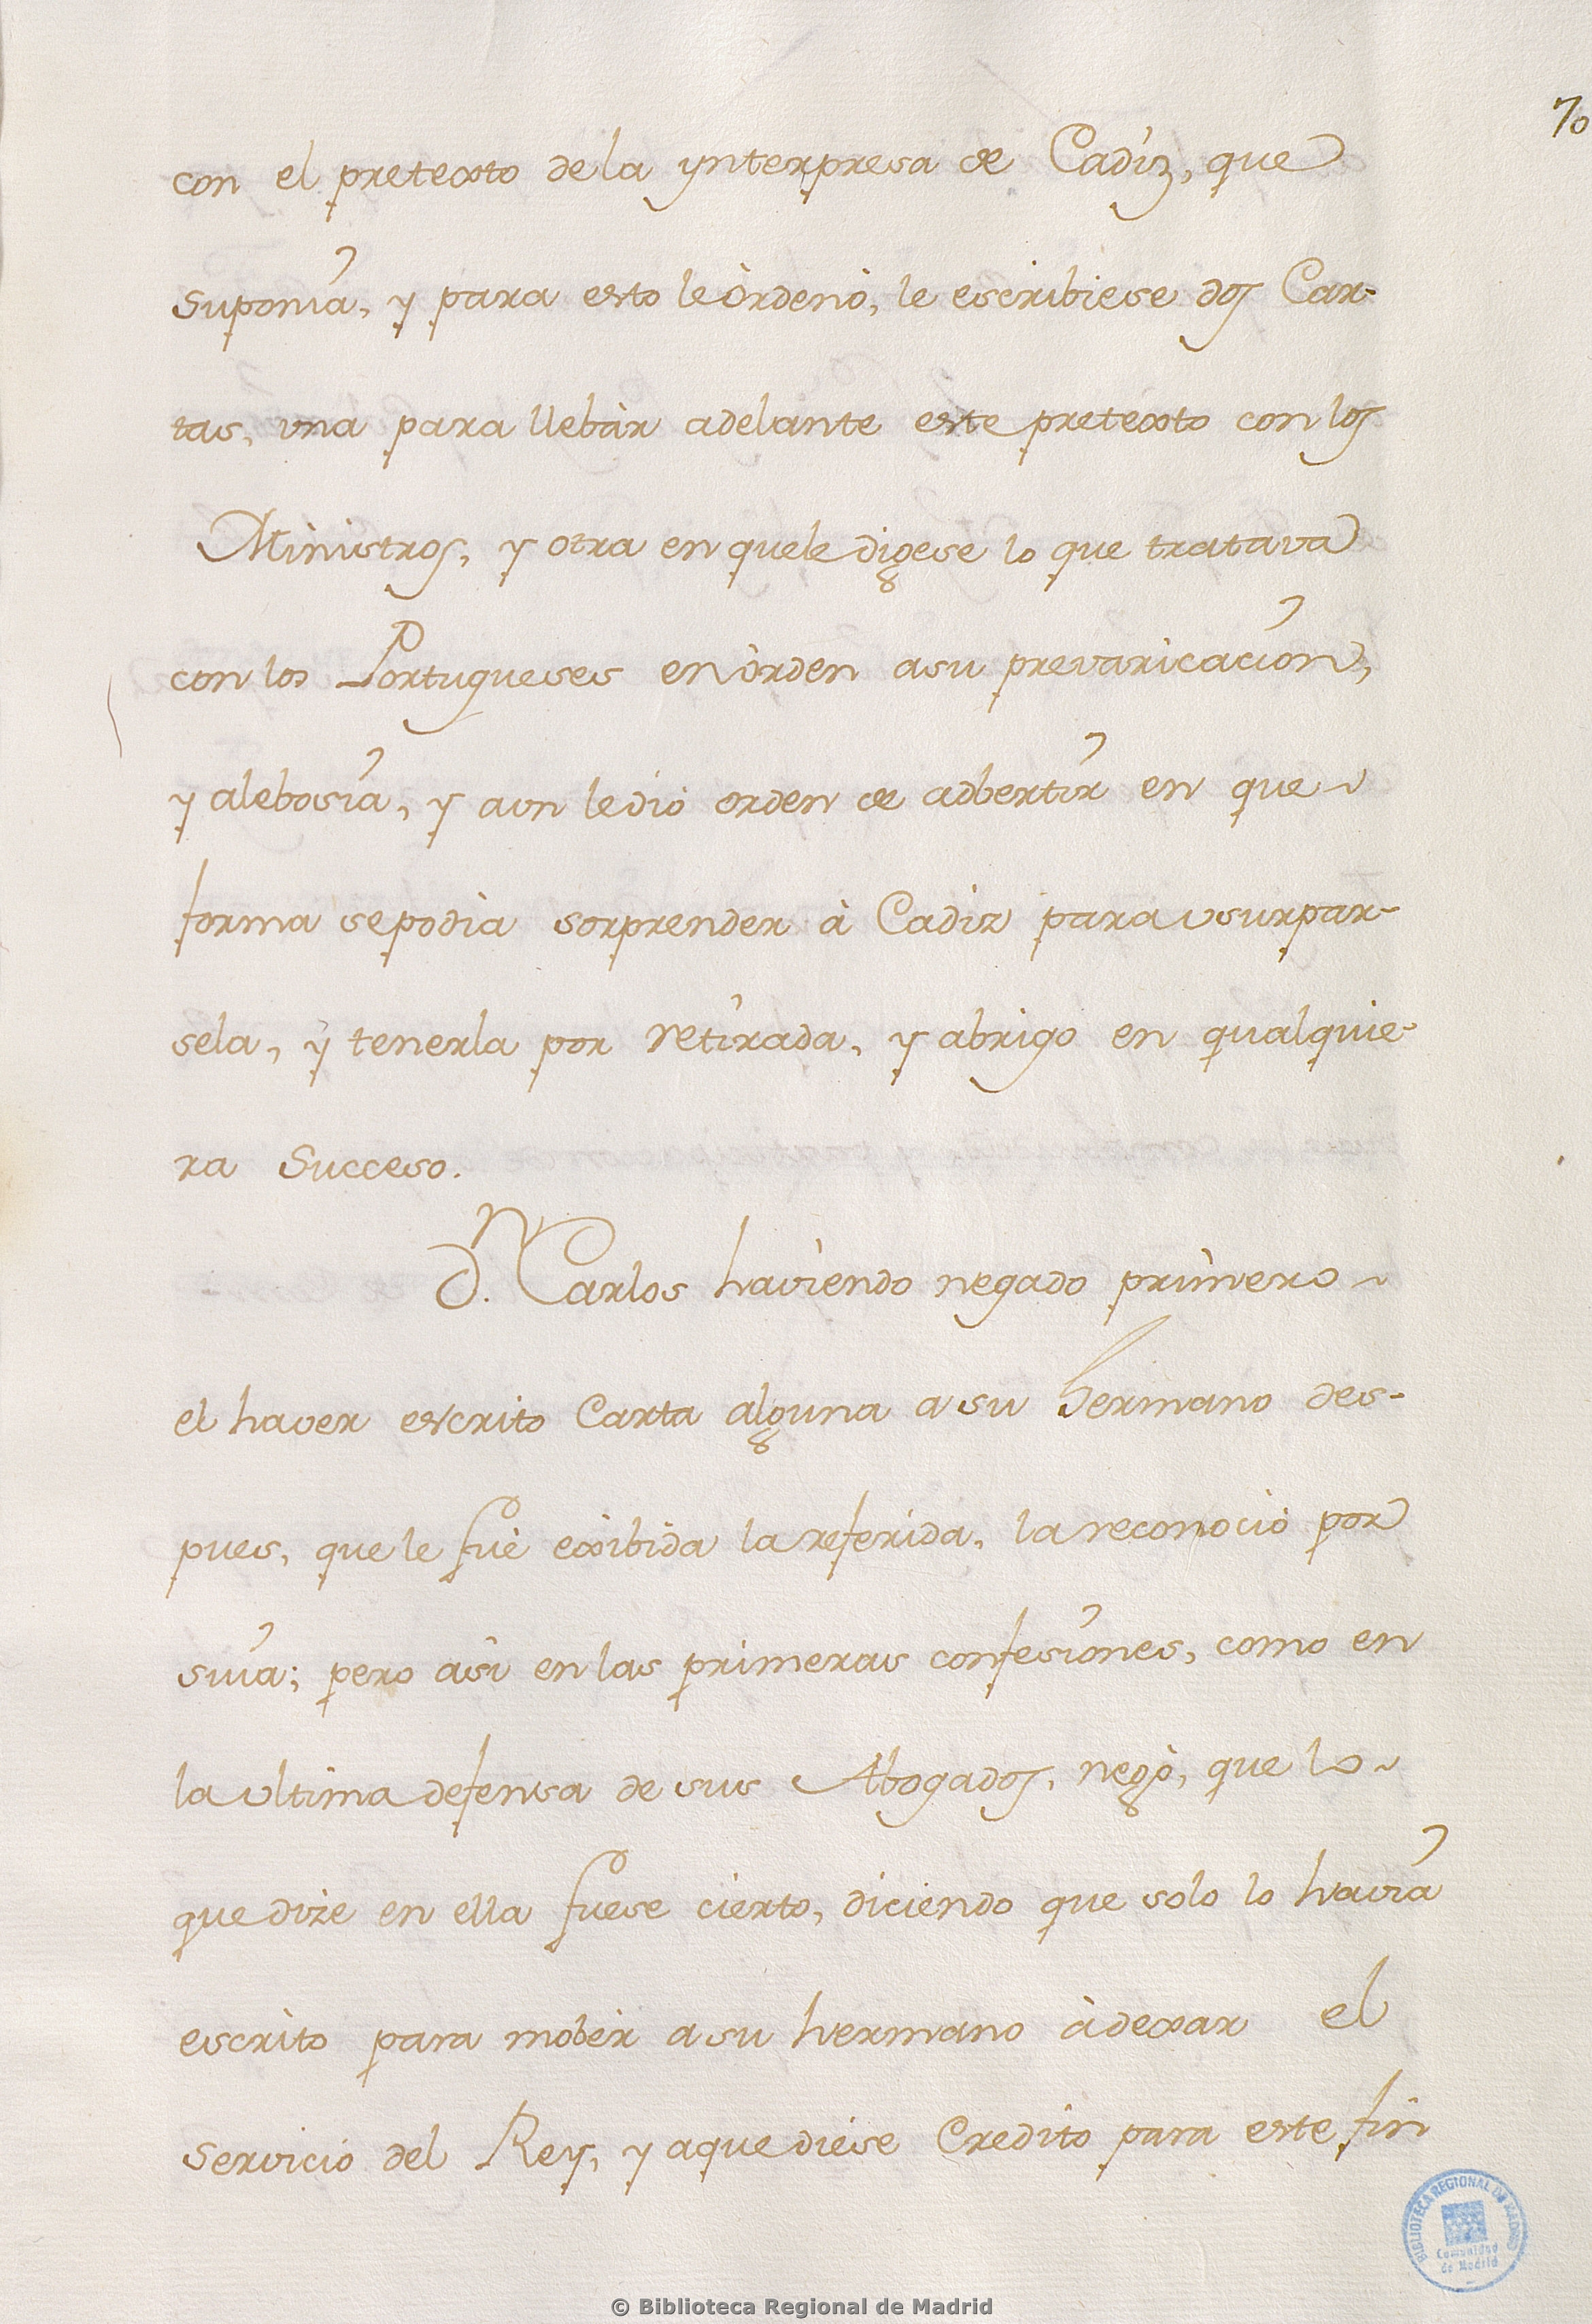 70
con el pretexto de la ynterpresa de Cadiz, que
suponia, y para esto le òrdenò, le escribiese dos Car-
tas, una para llebàr adelante este pretexto con los
Ministros, y otra en que le digese lo que tratava
con los Portugueses en òrden a su prevaricacion,
y alebosia, y aun le diò orden de adbertir en que
forma se podia sorprender à Cadiz para usurpar-
sela, y tenerla por retirada, y abrigo en qualquie-
ra Succeso.
D.n Carlos haviendo negado primero
el haver escrito Carta alguna a su hermano des-
pues, que le fuè exibida la referida, la reconociò por
suia; pero asi en las primeras confesiones, como en
la ultima defensa de sus Abogados, negò, que lo
que dize en ella fuese cierto, diciendo que solo lo havia
escrito para mobèr a su hermano à dexar el
servicio del Rey, y a que diese Credito para este fin
BIBLIOTECA REGIONAL DE MADRID
Comunidad
de Madrid
© Biblioteca Regional de Madrid